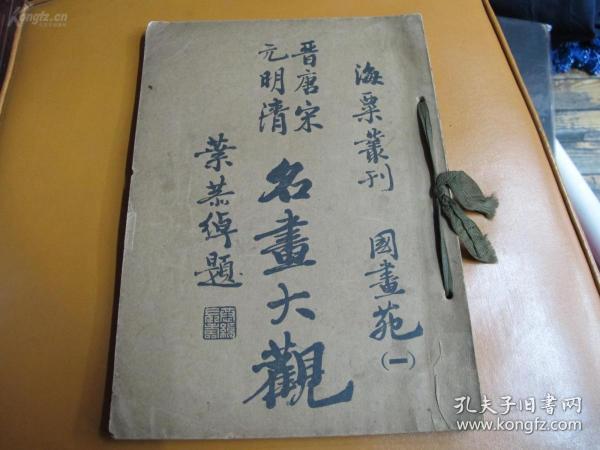 海粟叢刊 國畫苑(一)
晋唐宋
元明清
名畫大觀
葉恭綽題
Kongfz.cn
孔夫子旧书网
www.kongfz.com